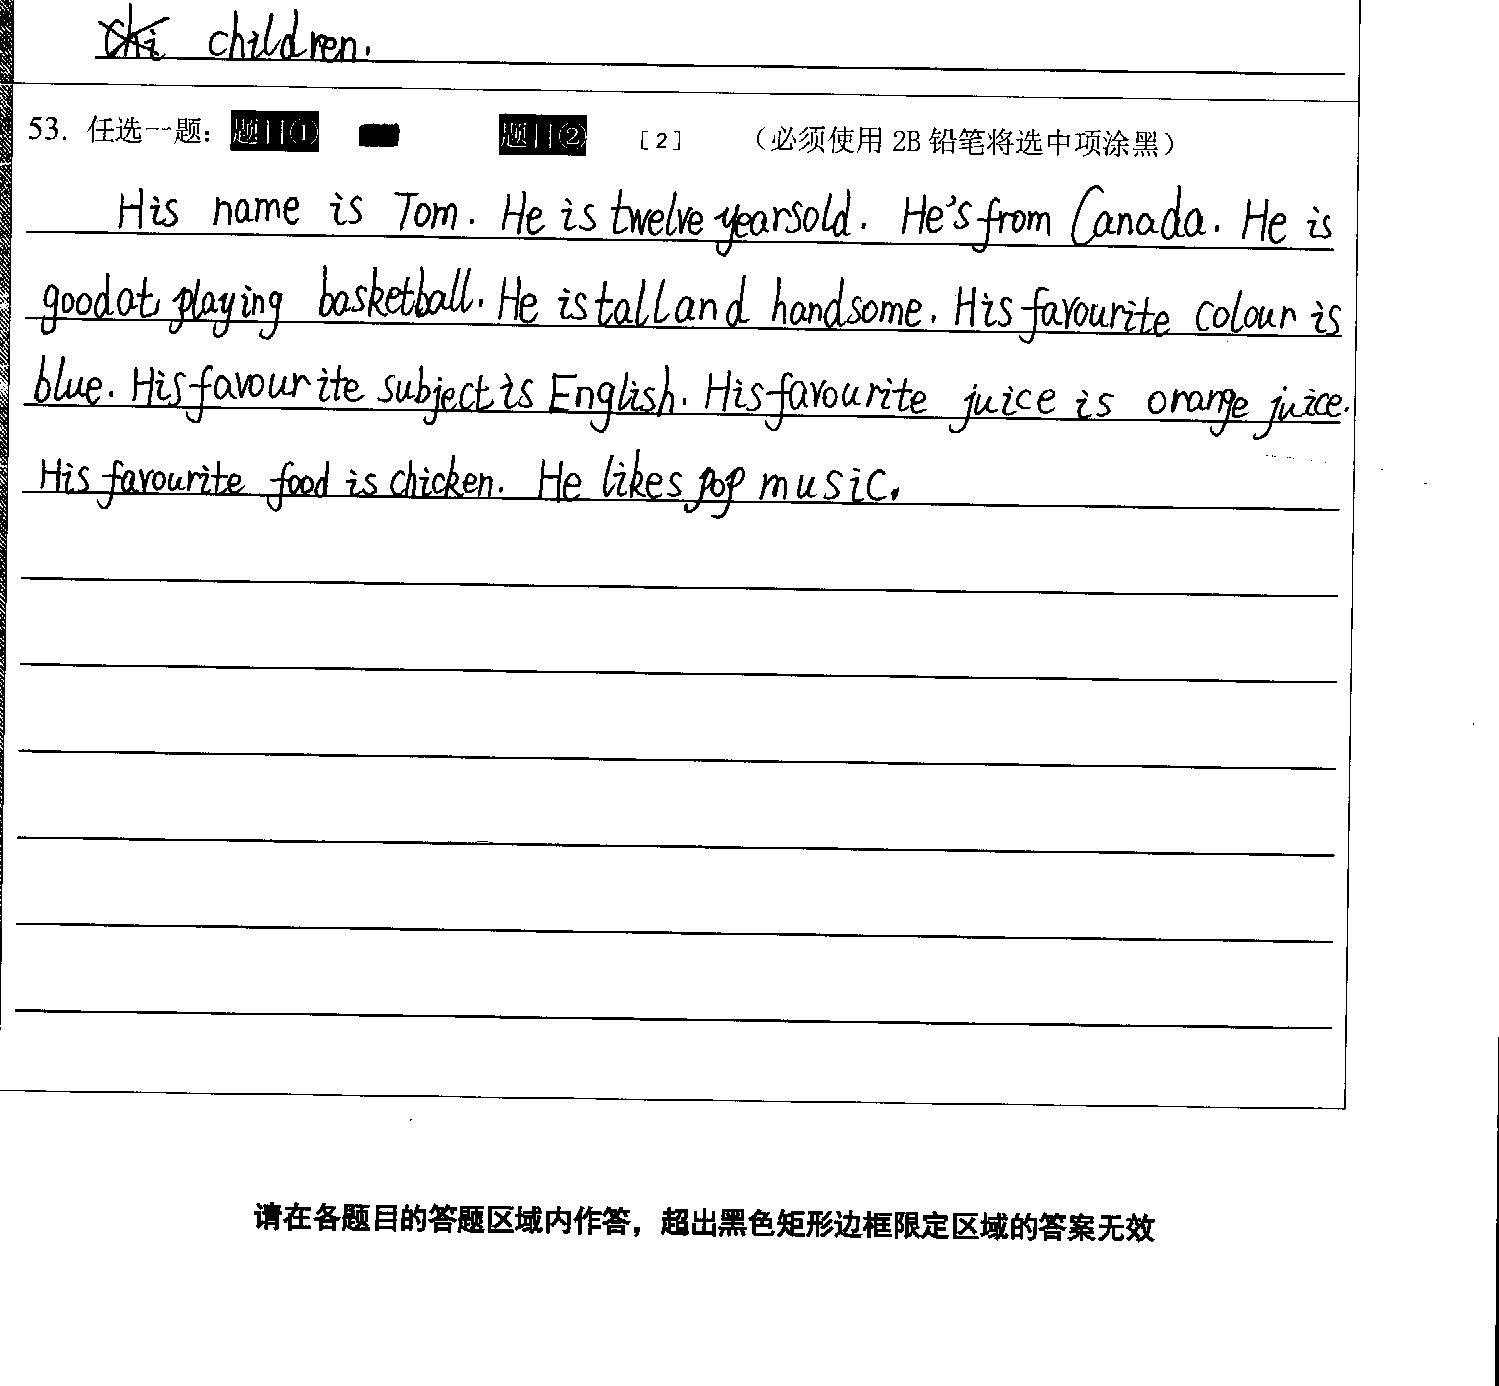 children.
53. 任选一题： 题目① 题目② [2] （必须使用 2B 铅笔将选中项涂黑）
His name is Tom. He is twelve years old. He's from Canada. He is
good at playing basketball. He is tall and handsome. His favourite colour is
blue. His favourite subject is English. His favourite juice is orange juice.
His favourite food is chicken. He likes pop music.
请在各题目的答题区域内作答，超出黑色矩形边框限定区域的答案无效